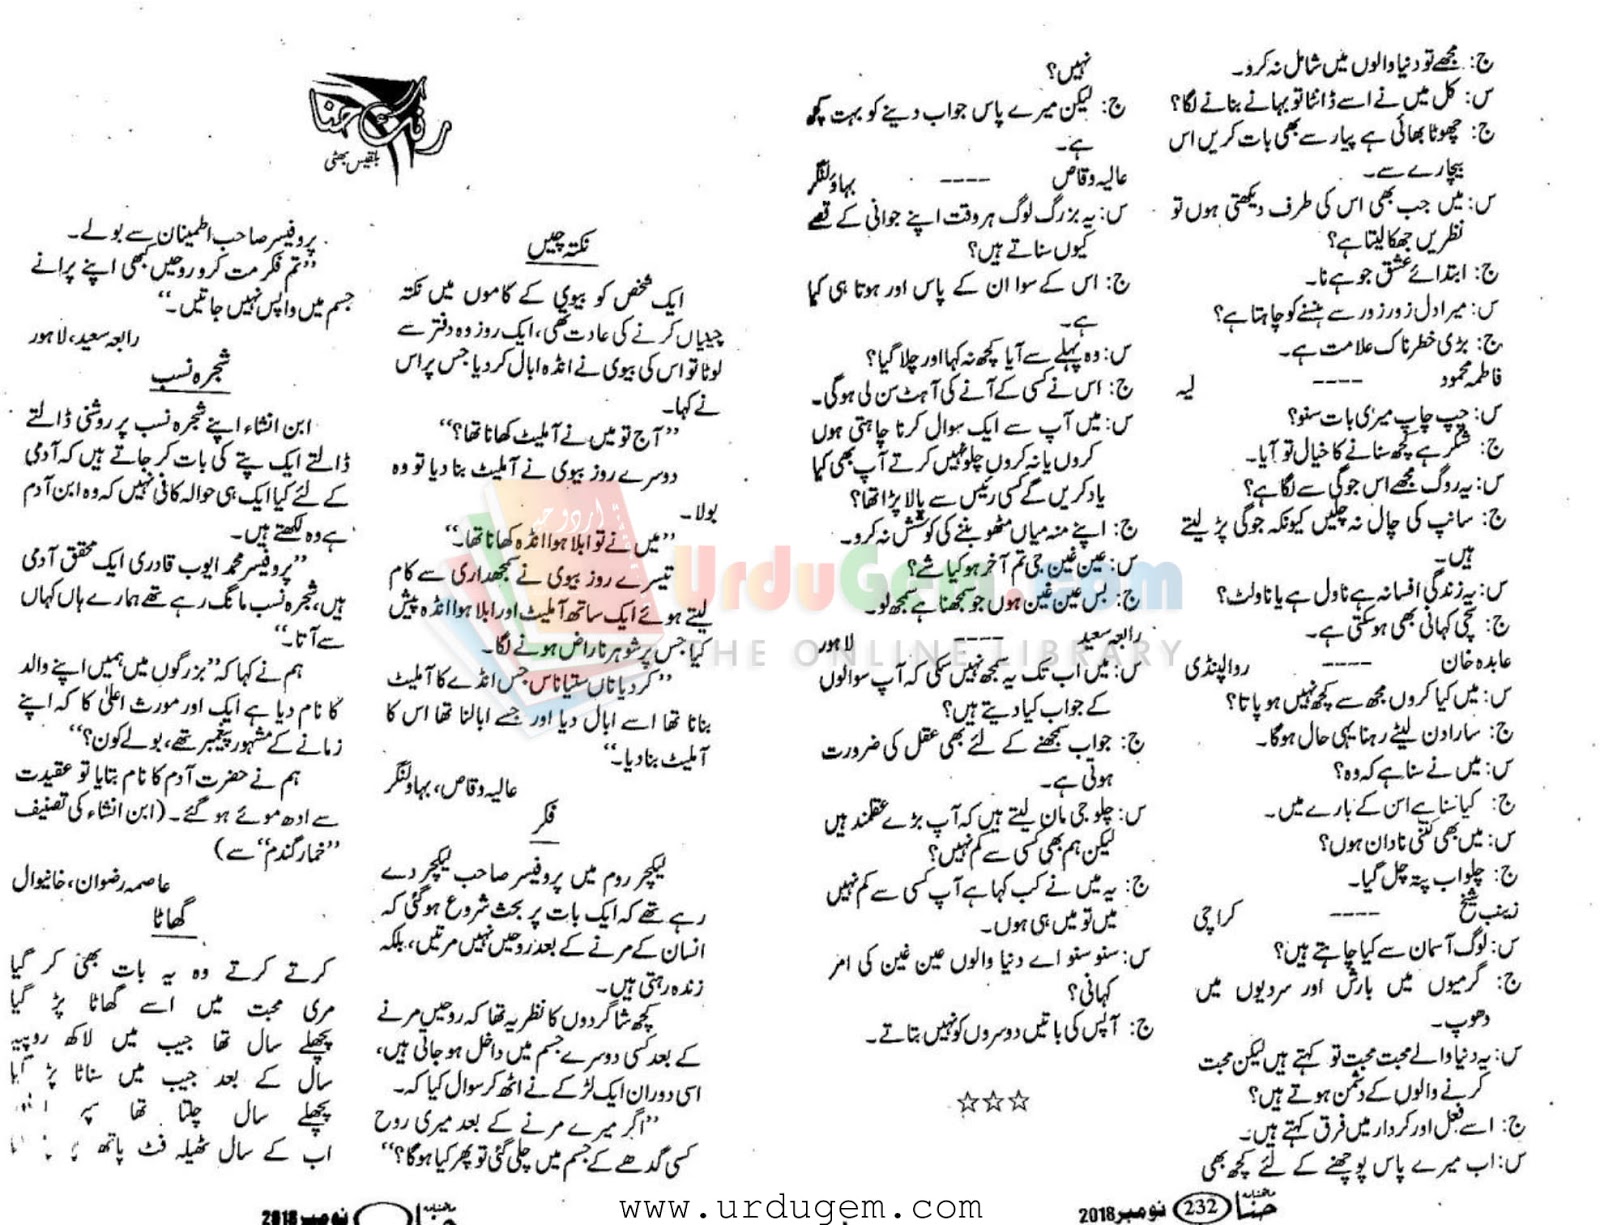 ج: مجھے تو دنیا والوں میں شامل نہ کرو۔
س: کل میں نے اسے ڈانٹا تو بہانے بنانے لگا؟
ج: چھوٹا بھائی ہے پیار سے بھی بات کریں اس
بیچارے سے۔
س: میں جب بھی اس کی طرف دیکھتی ہوں تو
نظریں جھکا لیتا ہے؟
ج: ابتدائے عشق جو ہے نا۔
س: میرا دل زور زور سے ہنسنے کو چاہتا ہے؟
ج: بڑی خطرناک علامت ہے۔
فاطمہ محمود ---- لیہ
س: چپ چاپ میری بات سنو؟
ج: شکر ہے کچھ سنانے کا خیال تو آیا۔
س: یہ روگ مجھے اس جوگی سے لگا ہے؟
ج: سانپ کی چال نہ چلیں کیونکہ جوگی پڑ لیتے
ہیں۔
س: یہ زندگی افسانہ ہے ناول ہے یا ناولٹ؟
ج: سچی کہانی بھی ہوسکتی ہے۔
عابدہ خان ---- روالپنڈی
س: میں کیا کروں مجھ سے کچھ نہیں ہو پاتا؟
ج: سارا دن لیٹے رہنا یہی حال ہوگا۔
س: میں نے سنا ہے کہ وہ؟
ج: کیا سنا ہے اس کے بارے میں۔
س: میں بھی کتنی نادان ہوں؟
ج: چلو اب پتہ چل گیا۔
زینب شیخ ---- کراچی
س: لوگ آسمان سے کیا چاہتے ہیں؟
ج: گرمیوں میں بارش اور سردیوں میں
دھوپ۔
س: یہ دنیا والے محبت محبت تو کہتے ہیں لیکن محبت
کرنے والوں کے دشمن ہوتے ہیں؟
ج: اسے فعل اور کردار میں فرق کہتے ہیں۔
س: اب میرے پاس پوچھنے کے لئے کچھ بھی
نہیں؟
ج: لیکن میرے پاس جواب دینے کو بہت کچھ
ہے۔
عالیہ وقاص ---- بہاولنگر
س: یہ بزرگ لوگ ہر وقت اپنے جوانی کے قصے
کیوں سناتے ہیں؟
ج: اس کے سوا ان کے پاس اور ہوتا ہی کیا
ہے۔
س: وہ پہلے سے آیا کچھ نہ کہا اور چلا گیا؟
ج: اس نے کسی کے آنے کی آہٹ سن لی ہوگی۔
س: میں آپ سے ایک سوال کرنا چاہتی ہوں
کروں یا نہ کروں چلو نہیں کرتے آپ بھی کیا
یاد کریں گے کسی رئیس سے پالا پڑا تھا؟
ج: اپنے منہ میاں مٹھو بننے کی کوشش نہ کرو۔
س: عین غین جی تم آخر ہو کیا شے؟
ج: بس عین غین ہوں جو سمجھنا ہے سمجھ لو۔
رابعہ سعید ---- لاہور
س: میں اب تک یہ سمجھ نہیں سکی کہ آپ سوالوں
کے جواب کیا دیتے ہیں؟
ج: جواب سمجھنے کے لئے بھی عقل کی ضرورت
ہوتی ہے۔
س: چلو جی مان لیتے ہیں کہ آپ بڑے عقلمند ہیں
لیکن ہم بھی کسی سے کم نہیں؟
ج: یہ میں نے کب کہا ہے آپ کسی سے کم نہیں
میں تو میں ہی ہوں۔
س: سنو سنو اے دنیا والوں عین غین کی امر
کہانی؟
ج: آپس کی باتیں دوسروں کو نہیں بتاتے۔
☆☆☆
ماہنامہ حنا 232 نومبر 2018
رنگ حنا
بلقیس بھٹی
نکتہ چیں
ایک شخص کو بیوی کے کاموں میں نکتہ
چینیاں کرنے کی عادت تھی، ایک روز وہ دفتر سے
لوٹا تو اس کی بیوی نے انڈہ ابال کر دیا جس پر اس
نے کہا۔
”آج تو میں نے آملیٹ کھانا تھا؟“
دوسرے روز بیوی نے آملیٹ بنا دیا تو وہ
بولا۔
”میں نے تو ابلا ہوا انڈہ کھانا تھا۔“
تیسرے روز بیوی نے سمجھداری سے کام
لیتے ہوئے ایک ساتھ آملیٹ اور ابلا ہوا انڈہ پیش
کیا جس پر شوہر ناراض ہونے لگا۔
”کر دیا ناں ستیاناس جس انڈے کا آملیٹ
بنانا تھا اسے ابال دیا اور جسے ابالنا تھا اس کا
آملیٹ بنا دیا۔“
عالیہ وقاص، بہاولنگر
فکر
لیکچر روم میں پروفیسر صاحب لیکچر دے
رہے تھے کہ ایک بات پر بحث شروع ہوگئی کہ
انسان کے مرنے کے بعد روحیں نہیں مرتیں، بلکہ
زندہ رہتی ہیں۔
کچھ شاگردوں کا نظریہ تھا کہ روحیں مرنے
کے بعد کسی دوسرے جسم میں داخل ہو جاتی ہیں،
اسی دوران ایک لڑکے نے اٹھ کر سوال کیا کہ۔
”اگر میرے مرنے کے بعد میری روح
کسی گدھے کے جسم میں چلی گئی تو پھر کیا ہوگا؟“
پروفیسر صاحب اطمینان سے بولے۔
”تم فکر مت کرو روحیں کبھی اپنے پرانے
جسم میں واپس نہیں جاتیں۔“
رابعہ سعید، لاہور
شجرہ نسب
ابن انشاء اپنے شجرہ نسب پر روشنی ڈالتے
ڈالتے ایک پتے کی بات کر جاتے ہیں کہ آدمی
کے لئے کیا ایک ہی حوالہ کافی نہیں کہ وہ ابن آدم
ہے وہ لکھتے ہیں۔
”پروفیسر محمد ایوب قادری ایک محقق آدمی
ہیں، شجرہ نسب مانگ رہے تھے ہمارے ہاں کہاں
سے آتا۔“
ہم نے کہا کہ ”بزرگوں میں ہمیں اپنے والد
کا نام دیا ہے ایک اور مورث اعلیٰ کا کہ اپنے
زمانے کے مشہور پیغمبر تھے، بولے کون؟“
ہم نے حضرت آدم کا نام بتایا تو عقیدت
سے ادھ موئے ہو گئے۔ (ابن انشاء کی تصنیف
”خمار گندم“ سے)
عاصمہ رضوان، خانیوال
گھاٹا
کرتے کرتے وہ یہ بات بھی کر گیا
مری محبت میں اسے گھاٹا پڑ گیا
پچھلے سال تھا جیب میں لاکھ روپیہ
سال کے بعد جیب میں سناٹا پڑ گیا
پچھلے سال چلتا تھا سپر
اب کے سال ٹھیلہ فٹ پاتھ پر
ماہنامہ حنا نومبر 2018
اردو جیم
UrduGem.com
THE ONLINE LIBRARY
www.urdugem.com